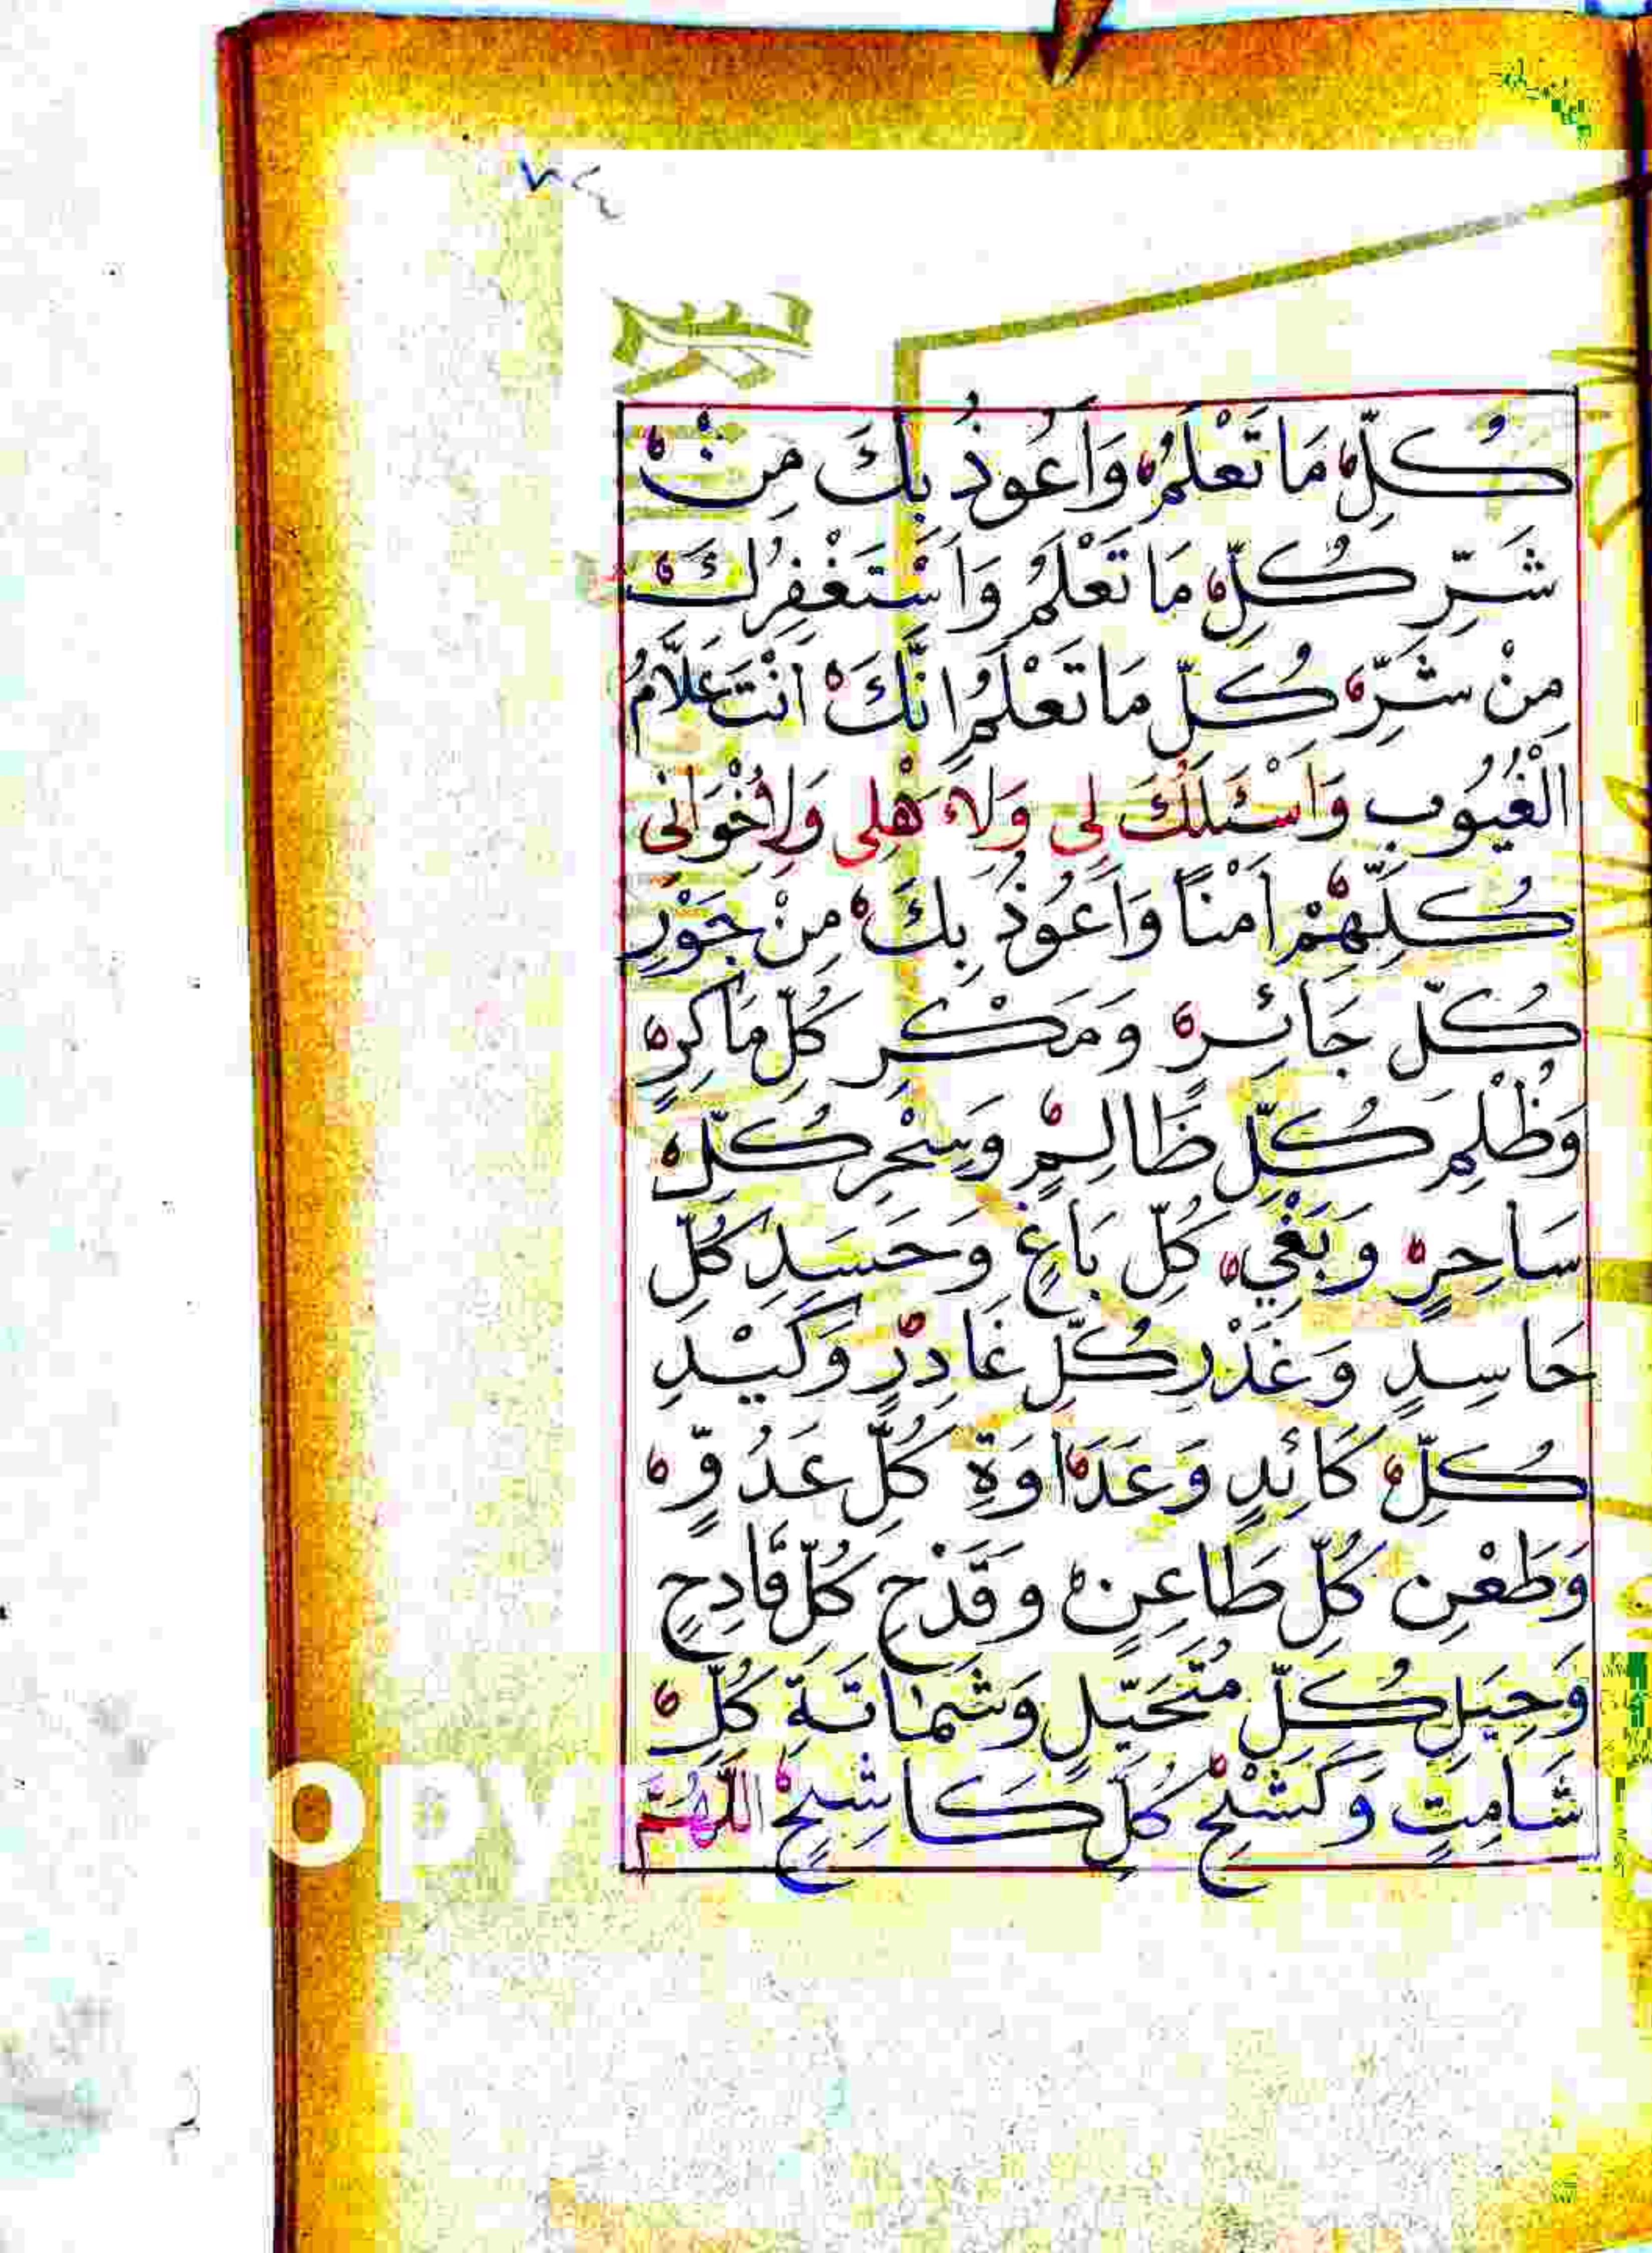 كُلِّ مَا تَعْلَمُ وَاَعُوذُ بِكَ مِنْ
شَرِّ كُلِّ مَا تَعْلَمُ وَاَسْتَغْفِرُكَ
مِنْ شَرِّ كُلِّ مَا تَعْلَمُ اِنَّكَ اَنْتَ عَلَّامُ
الْغُيُوبِ وَاَسْئَلُكَ لِى وَلِاَهْلِى وَلِاِخْوَانِى
كُلِّهِمْ اَمْنًا وَاَعُوذُ بِكَ مِنْ جَوْرِ
كُلِّ جَائِرٍ وَمَكْرِ كُلِّ مَاكِرٍ
وَظُلْمِ كُلِّ ظَالِمٍ وَسِحْرِ كُلِّ
سَاحِرٍ وَبَغْيِ كُلِّ بَاغٍ وَحَسَدِ كُلِّ
حَاسِدٍ وَغَدْرِ كُلِّ غَادِرٍ وَكَيْدِ
كُلِّ كَائِدٍ وَعَدَاوَةِ كُلِّ عَدُوٍّ
وَطَعْنِ كُلِّ طَاعِنٍ وَقَدْحِ كُلِّ قَادِحٍ
وَحِيَلِ كُلِّ مُتَحَيِّلٍ وَشَمَاتَةِ كُلِّ
شَامِتٍ وَكَشْحِ كُلِّ كَاشِحٍ اَللّٰهُمَّ
opy